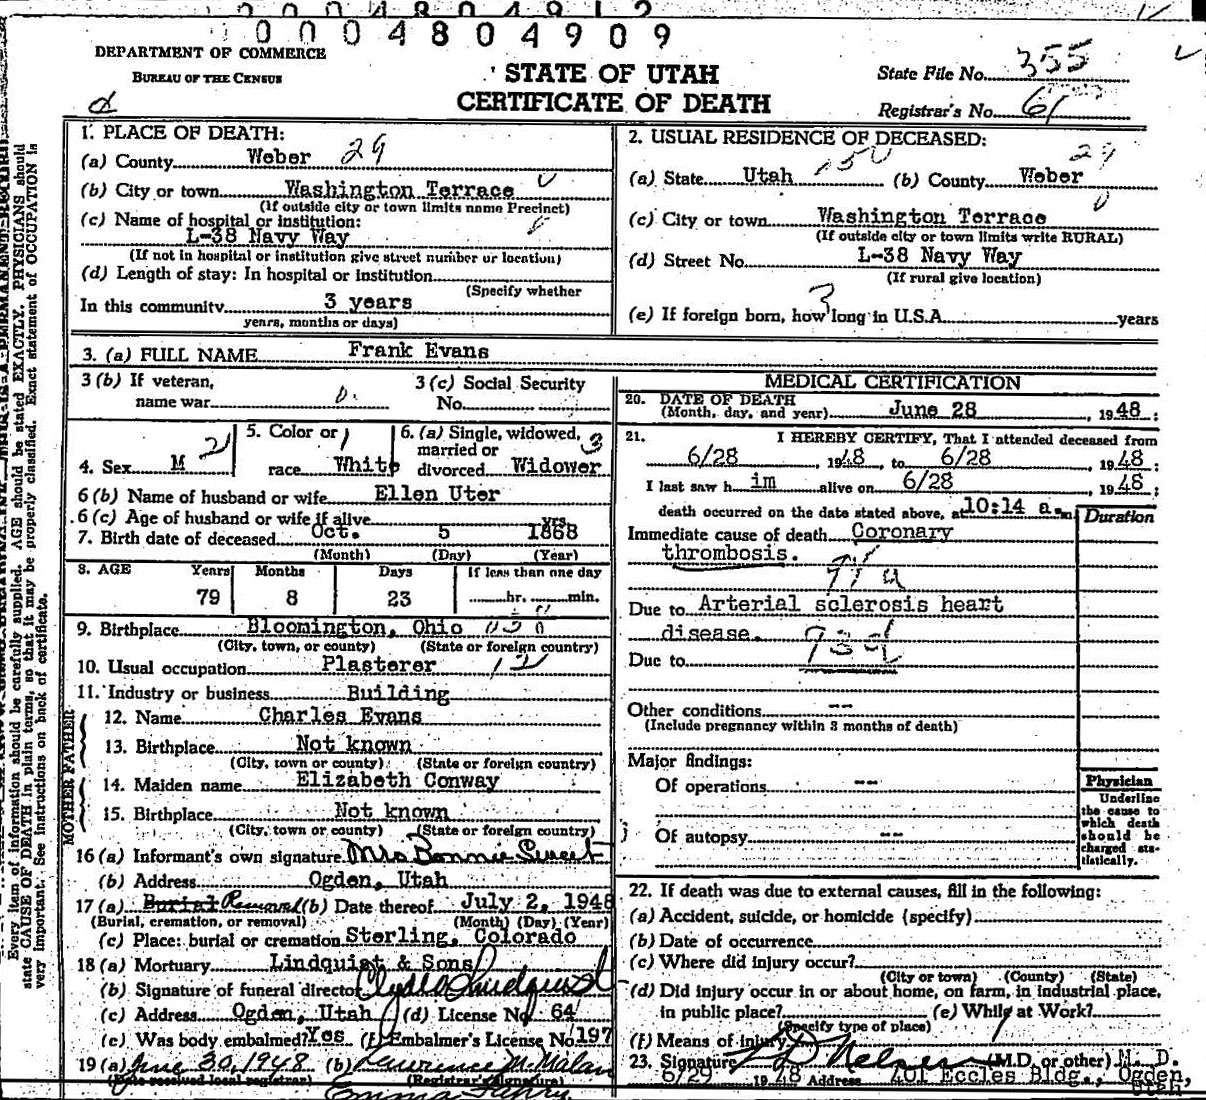 0004804909
DEPARTMENT OF COMMERCE
BUREAU OF THE CENSUS
STATE OF UTAH
CERTIFICATE OF DEATH
State File No. 355
Registrar's No. 61
Every item of information should be carefully supplied. AGE should be stated EXACTLY. PHYSICIANS should
state CAUSE OF DEATH in plain terms, so that it may be properly classified. Exact statement of OCCUPATION is
very important. See instructions on back of certificate.
1. PLACE OF DEATH:
(a) County Weber 29
(b) City or town Washington Terrace
(If outside city or town limits name Precinct)
(c) Name of hospital or institution:
L-38 Navy Way
(If not in hospital or institution give street number or location)
(d) Length of stay: In hospital or institution
(Specify whether
In this community 3 years
years, months or days)
2. USUAL RESIDENCE OF DECEASED:
29
(a) State Utah (b) County Weber
(c) City or town Washington Terrace
(If outside city or town limits write RURAL)
(d) Street No. L-38 Navy Way
(If rural give location)
3
(e) If foreign born, how long in U.S.A. years
3. (a) FULL NAME Frank Evans
3 (b) If veteran,
name war
3 (c) Social Security
No.
4. Sex M 2
5. Color or 1
race White
6. (a) Single, widowed, 3
married or
divorced Widower
6 (b) Name of husband or wife Ellen Uter
6 (c) Age of husband or wife if alive yrs.
7. Birth date of deceased Oct. 5 1868
(Month) (Day) (Year)
8. AGE Years Months Days If less than one day
79 8 23 hr. min.
9. Birthplace Bloomington, Ohio
(City, town, or county) (State or foreign country)
10. Usual occupation Plasterer
11. Industry or business Building
FATHER
12. Name Charles Evans
13. Birthplace Not known
(City, town or county) (State or foreign country)
MOTHER
14. Maiden name Elizabeth Conway
15. Birthplace Not known
(City, town or county) (State or foreign country)
16 (a) Informant's own signature Mrs Bonnie Sweet
(b) Address Ogden, Utah
17 (a) Burial Removal (b) Date thereof July 2, 1948
(Burial, cremation, or removal) (Month) (Day) (Year)
(c) Place: burial or cremation Sterling, Colorado
18 (a) Mortuary Lindquist & Sons
(b) Signature of funeral director Clyde Lindquist
(c) Address Ogden, Utah (d) License No. 64
(e) Was body embalmed? Yes (f) Embalmer's License No. 197
19 (a) June 30, 1948 (b) Lawrence M. Malan
(Date received local registrar) (Registrar's signature)
Emma
MEDICAL CERTIFICATION
20. DATE OF DEATH
(Month, day, and year) June 28, 1948;
21. I HEREBY CERTIFY, That I attended deceased from
6/28, 1948, to 6/28 1948;
I last saw him alive on 6/28, 1948;
death occurred on the date stated above, at 10:14 a.m.
Duration
Immediate cause of death Coronary
thrombosis.
Due to Arterial sclerosis heart
disease.
Due to
Other conditions --
(Include pregnancy within 3 months of death)
Major findings:
Of operations --
Of autopsy --
Physician
Underline
the cause to
which death
should be
charged sta-
tistically.
22. If death was due to external causes, fill in the following:
(a) Accident, suicide, or homicide (specify)
(b) Date of occurrence
(c) Where did injury occur?
(City or town) (County) (State)
(d) Did injury occur in or about home, on farm, in industrial place,
in public place? (e) While at Work?
(Specify type of place)
(f) Means of injury
23. Signature Nelson (M.D. or other) M. D.
6/29 1948 Address 401 Eccles Bldg., Ogden,
Utah